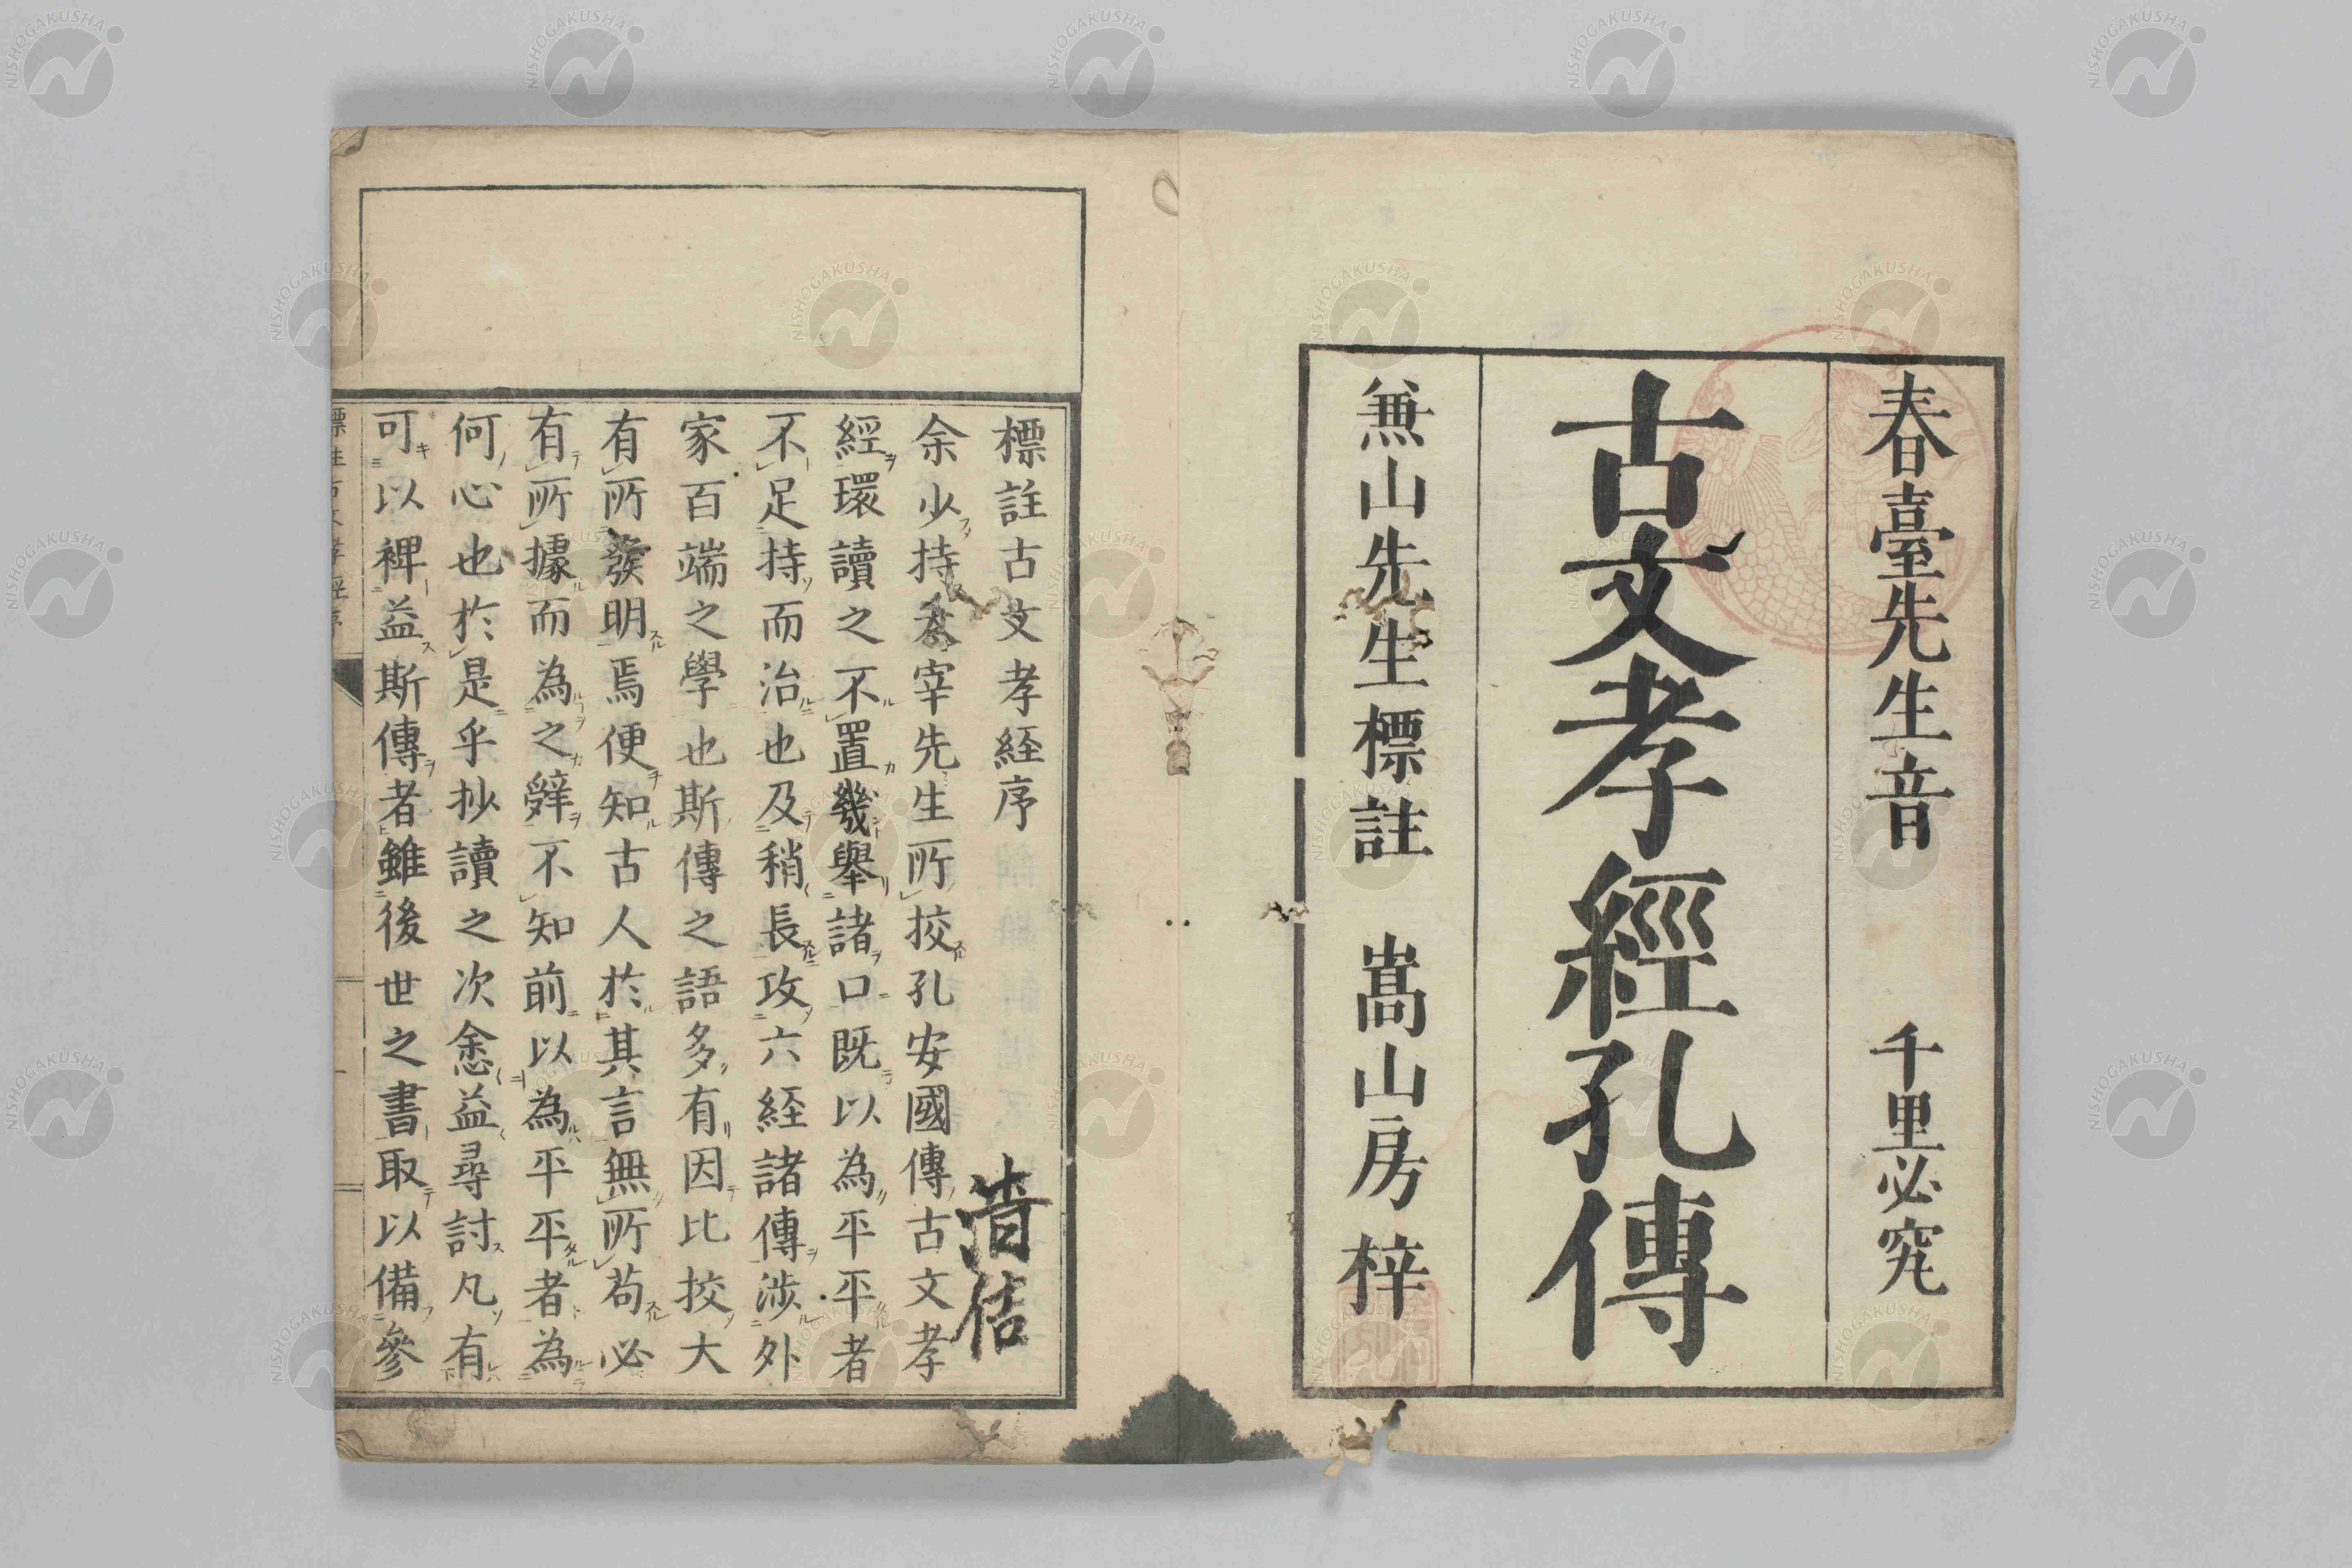 春臺先生音 千里必究
古文孝經孔傳
兼山先生標註 嵩山房梓
標註古文孝経序
余少持太宰先生所挍孔安國傳古文孝
經環讀之不置幾舉諸口既以為平平者
不足持而治也及稍長攻六経諸傳涉外
家百端之學也斯傳之語多有因比挍大
有所發明焉便知古人於其言無所苟必
有所據而為之辤不知前以為平平者為
何心也於是乎抄讀之次悆益尋討凡有
可以裨益斯傳者雖後世之書取以備參
NISHOGAKUSHA